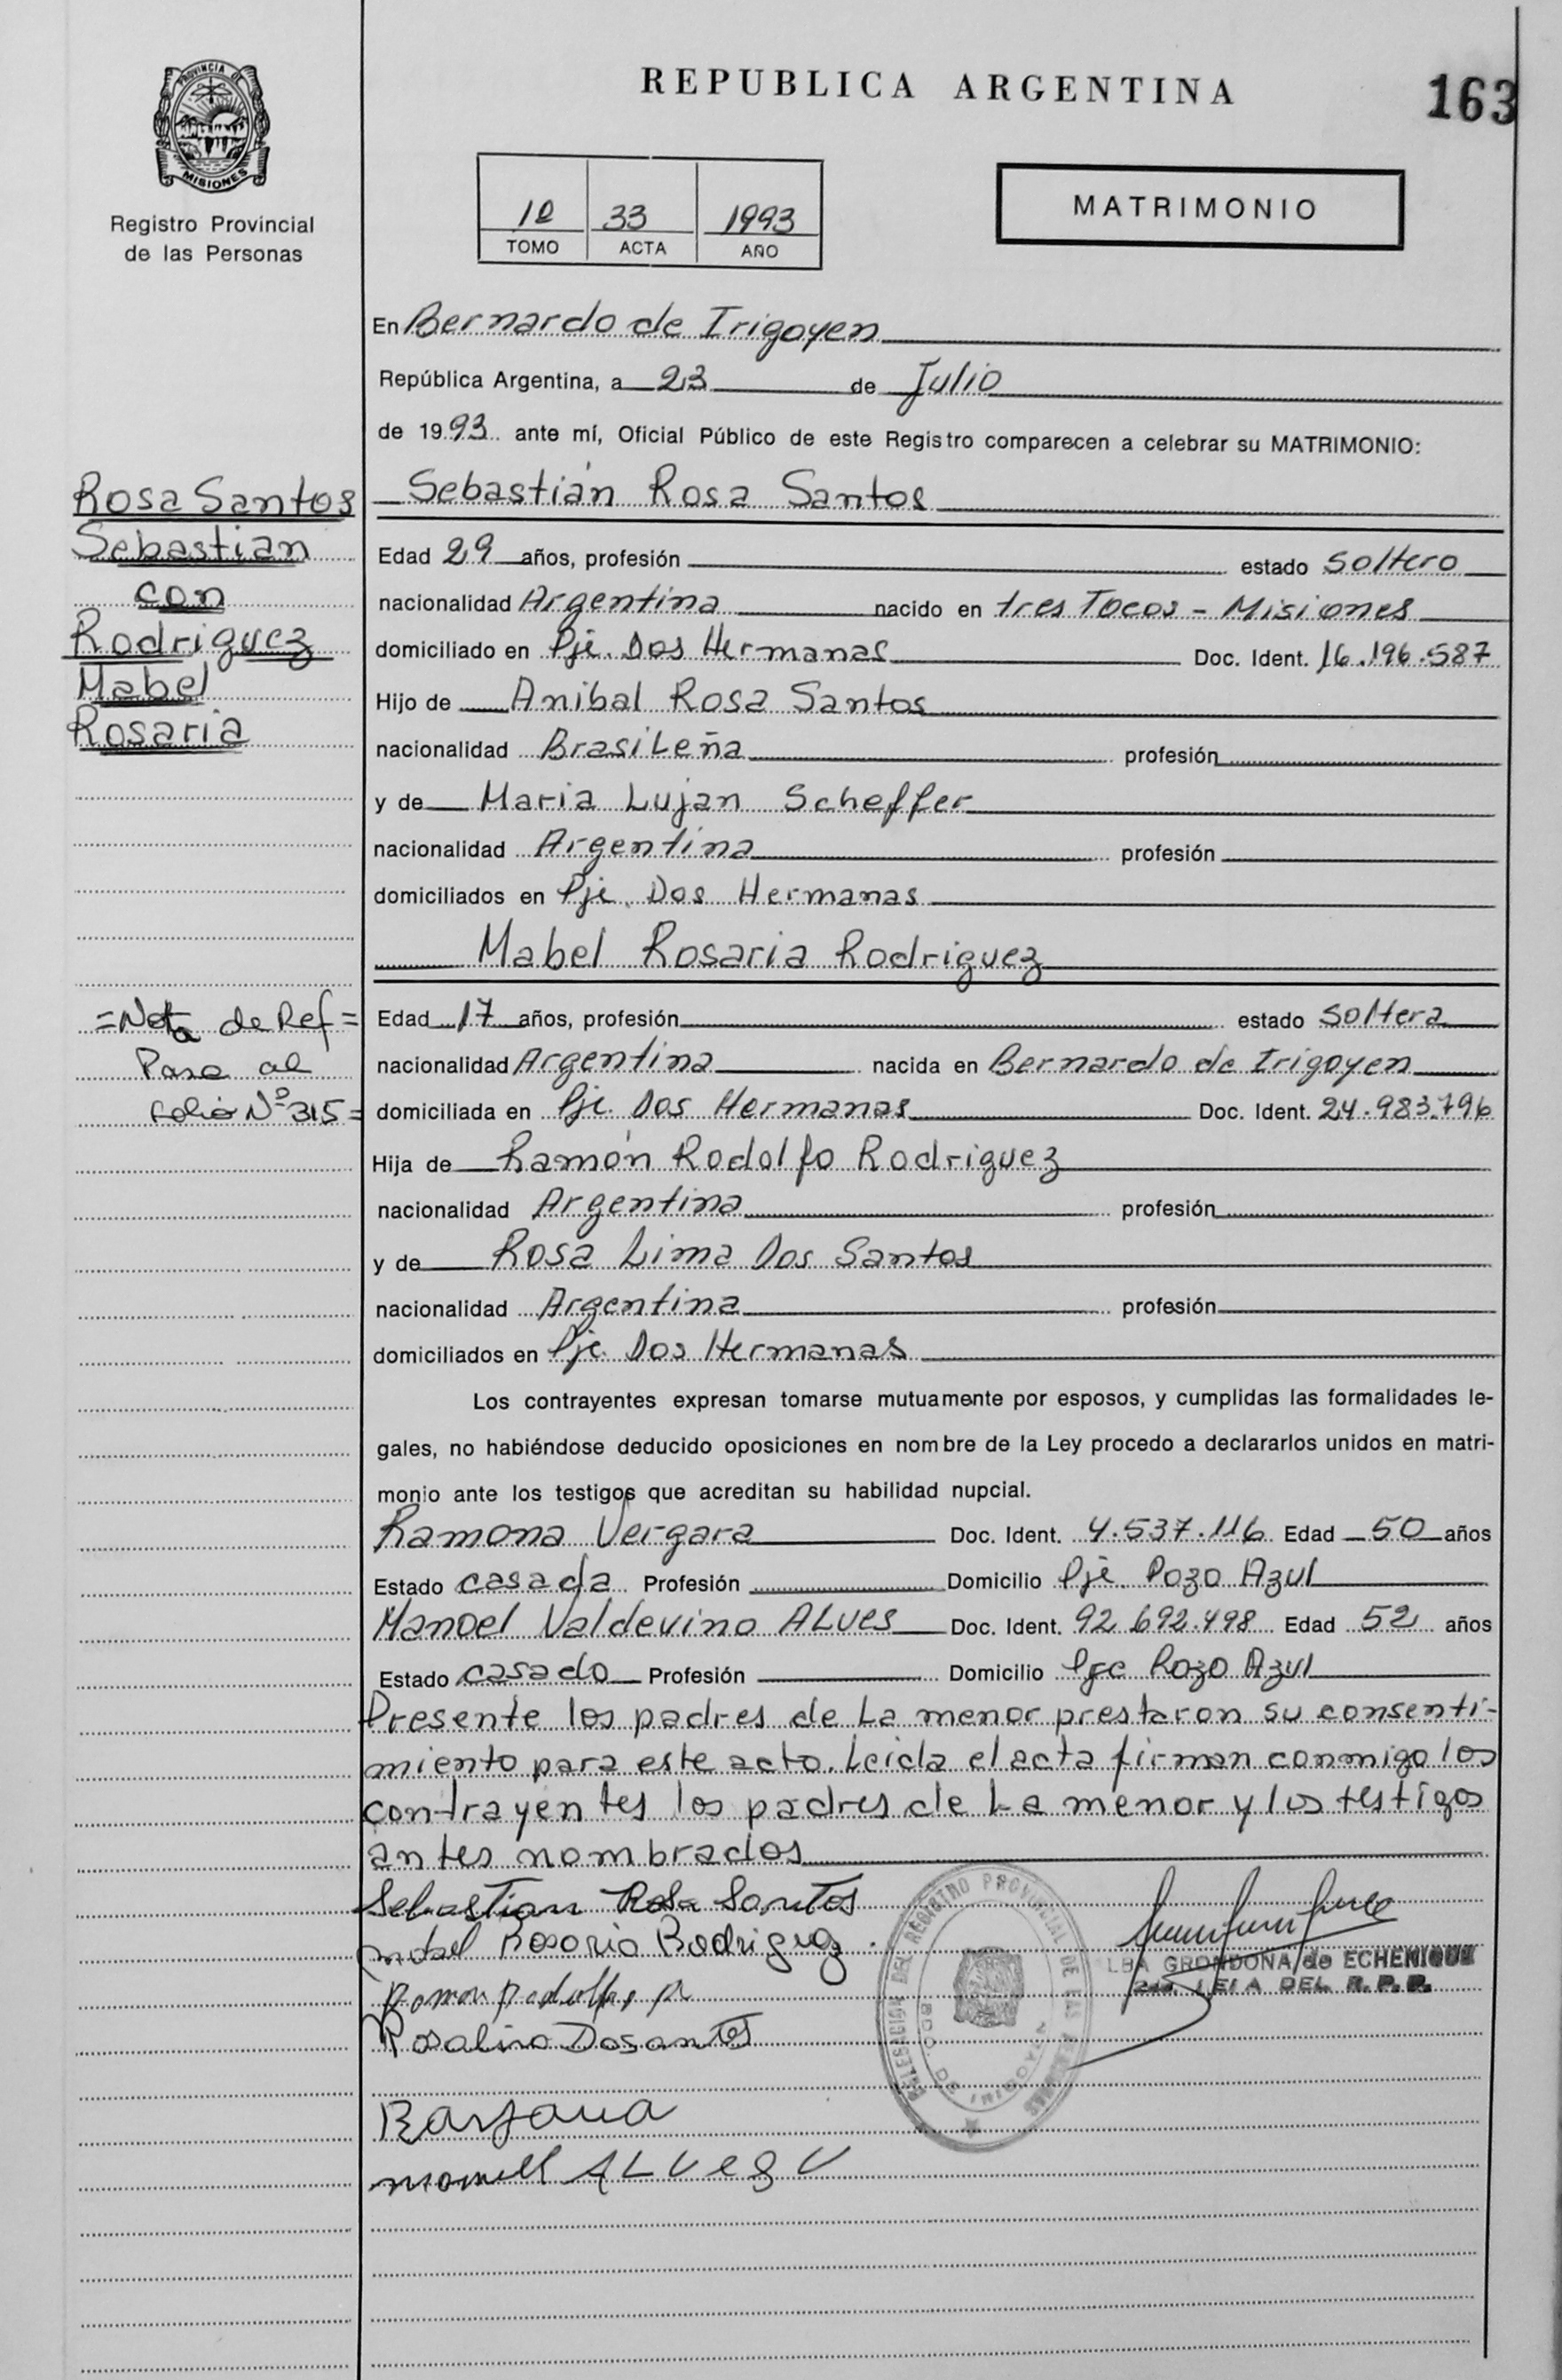 REPUBLICA ARGENTINA
163
PROVINCIA DE
MISIONES
Registro Provincial
de las Personas
1º 33 1993
TOMO ACTA AÑO
MATRIMONIO
En Bernardo de Irigoyen
República Argentina, a 23 de Julio
de 1993 ante mí, Oficial Público de este Registro comparecen a celebrar su MATRIMONIO:
Rosa Santos
Sebastian
con
Rodriguez
Mabel
Rosaria
Sebastián Rosa Santos
Edad 29 años, profesión estado Soltero
nacionalidad Argentina nacido en tres Tocos - Misiones
domiciliado en Pje. Dos Hermanas Doc. Ident. 16.196.587
Hijo de Anibal Rosa Santos
nacionalidad Brasileña profesión
y de Maria Lujan Scheffer
nacionalidad Argentina profesión
domiciliados en Pje. Dos Hermanas
Mabel Rosaria Rodriguez
=Nota de Ref=
Pasa al
folio Nº 315=
Edad 17 años, profesión estado Soltera
nacionalidad Argentina nacida en Bernardo de Irigoyen
domiciliada en Pje. Dos Hermanas Doc. Ident. 24.983.796
Hija de Ramón Rodolfo Rodriguez
nacionalidad Argentina profesión
y de Rosa Lima Dos Santos
nacionalidad Argentina profesión
domiciliados en Pje. Dos Hermanas
Los contrayentes expresan tomarse mutuamente por esposos, y cumplidas las formalidades le-
gales, no habiéndose deducido oposiciones en nombre de la Ley procedo a declararlos unidos en matri-
monio ante los testigos que acreditan su habilidad nupcial.
Ramona Vergara Doc. Ident. 4.537.116 Edad 50 años
Estado casada Profesión Domicilio Pje. Pozo Azul
Manoel Valdevino ALves Doc. Ident. 92.692.498 Edad 52 años
Estado casado Profesión Domicilio Pje Pozo Azul
Presente los padres de La menor prestaron su consenti-
miento para este acto. Leida el acta firman conmigo los
contrayentes los padres de La menor y los testigos
antes nombrados
Sebastian Rosa Santos
Mabel Rosaria Rodriguez
Ramon Rodolfo R
Rosalina Dosantos
GRONDONA de ECHENIQUE
DEL R.P.P.
DEL REGISTRO PROVINCIAL DE LAS
BDO. DE IRIGOYEN
ALVES V